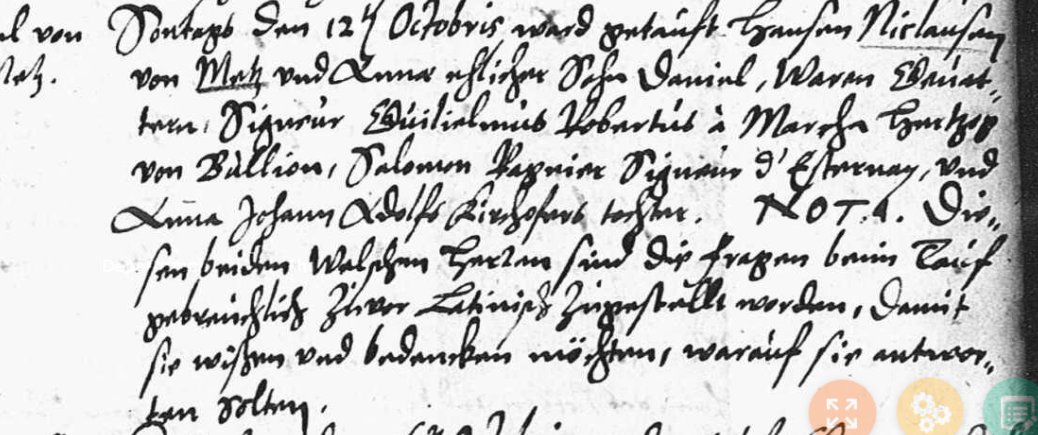 l von Sontags den 12 Octobris ward getauft Hansen Niclausen
Metz. von Metz und Anna ehlicher Sohn Daniel, Waren Gevat-
tern, Signeur Guilielmus Robertus à Marcha Hertzog
von Bullion, Salomon Signeur d'Esternay, und
Anna Johann Adolfs Kirchofers tochter. NOTA. Die-
sen beiden Welschen Herren sind die fragen beim Tauf
gebreuchlich zuvor Latinisch zugestellt worden, damit
sie wißen und bedencken möchten, warauf sie antwor-
ten solten.